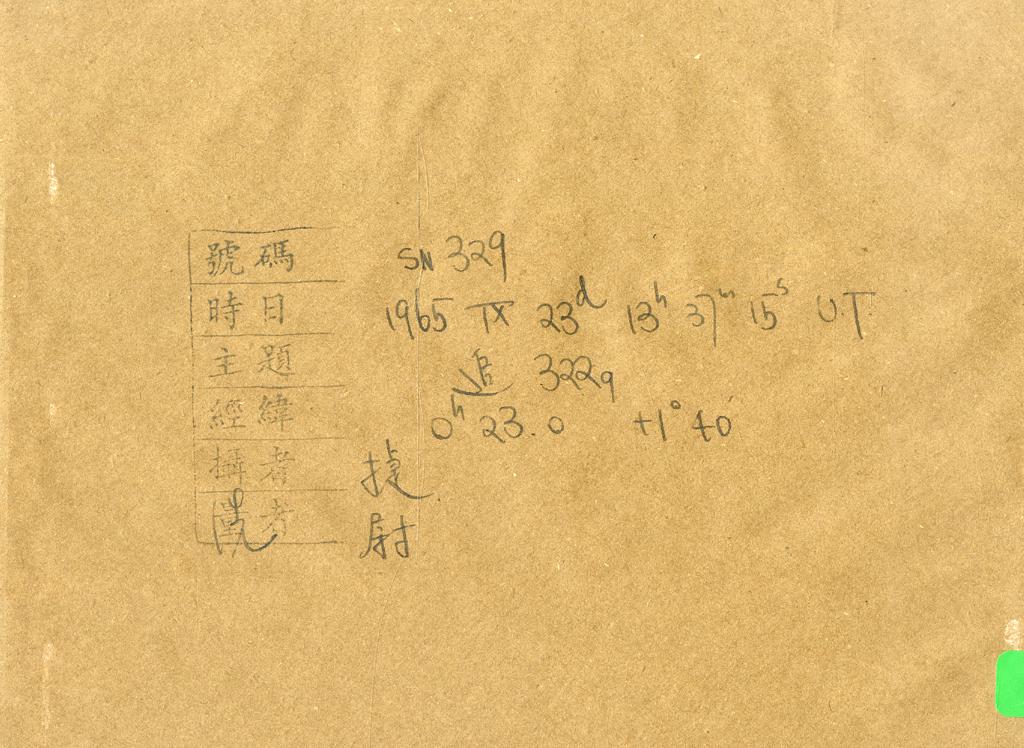 號碼 SN 329
時日 1965 IX 23d 13h 37m 15s U.T.
主題 追 3229
經緯 0h 23.0 +1° 40'
攝者 捷
者 尉